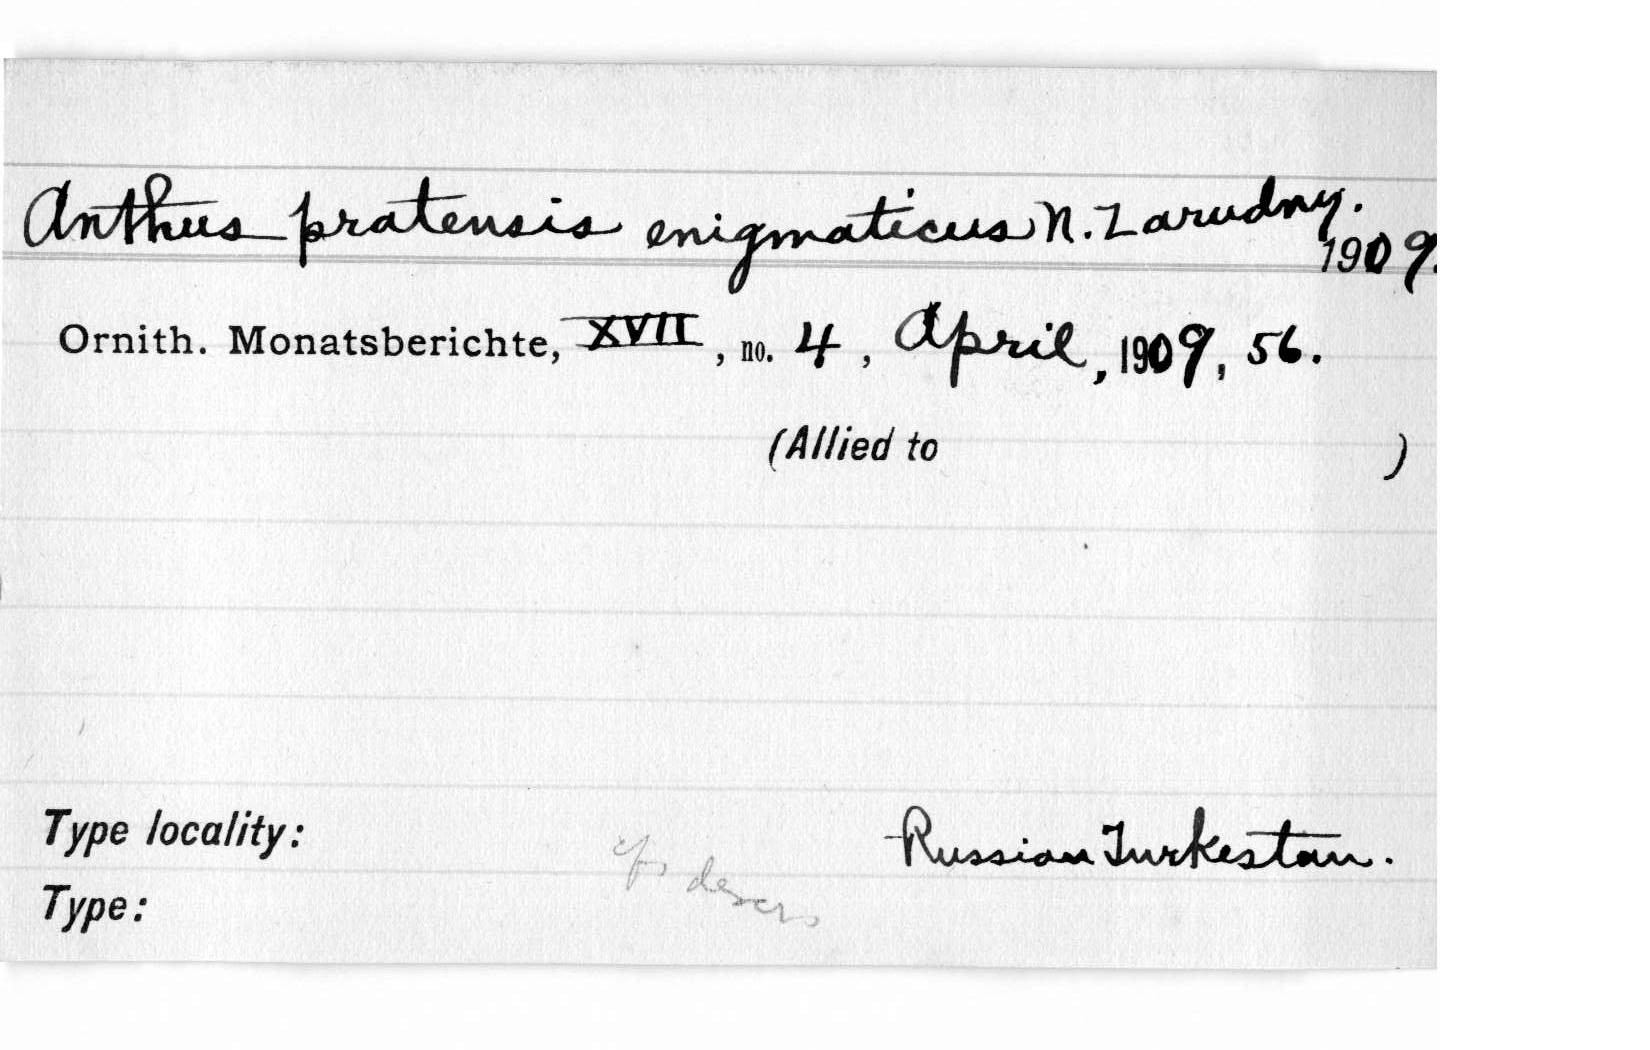 Anthus pratensis enigmaticus N. Zarudny.
1909.
Ornith. Monatsberichte, XVII, no. 4, April, 1909, 56.
(Allied to )
Type locality: Russian Turkestan.
Type: